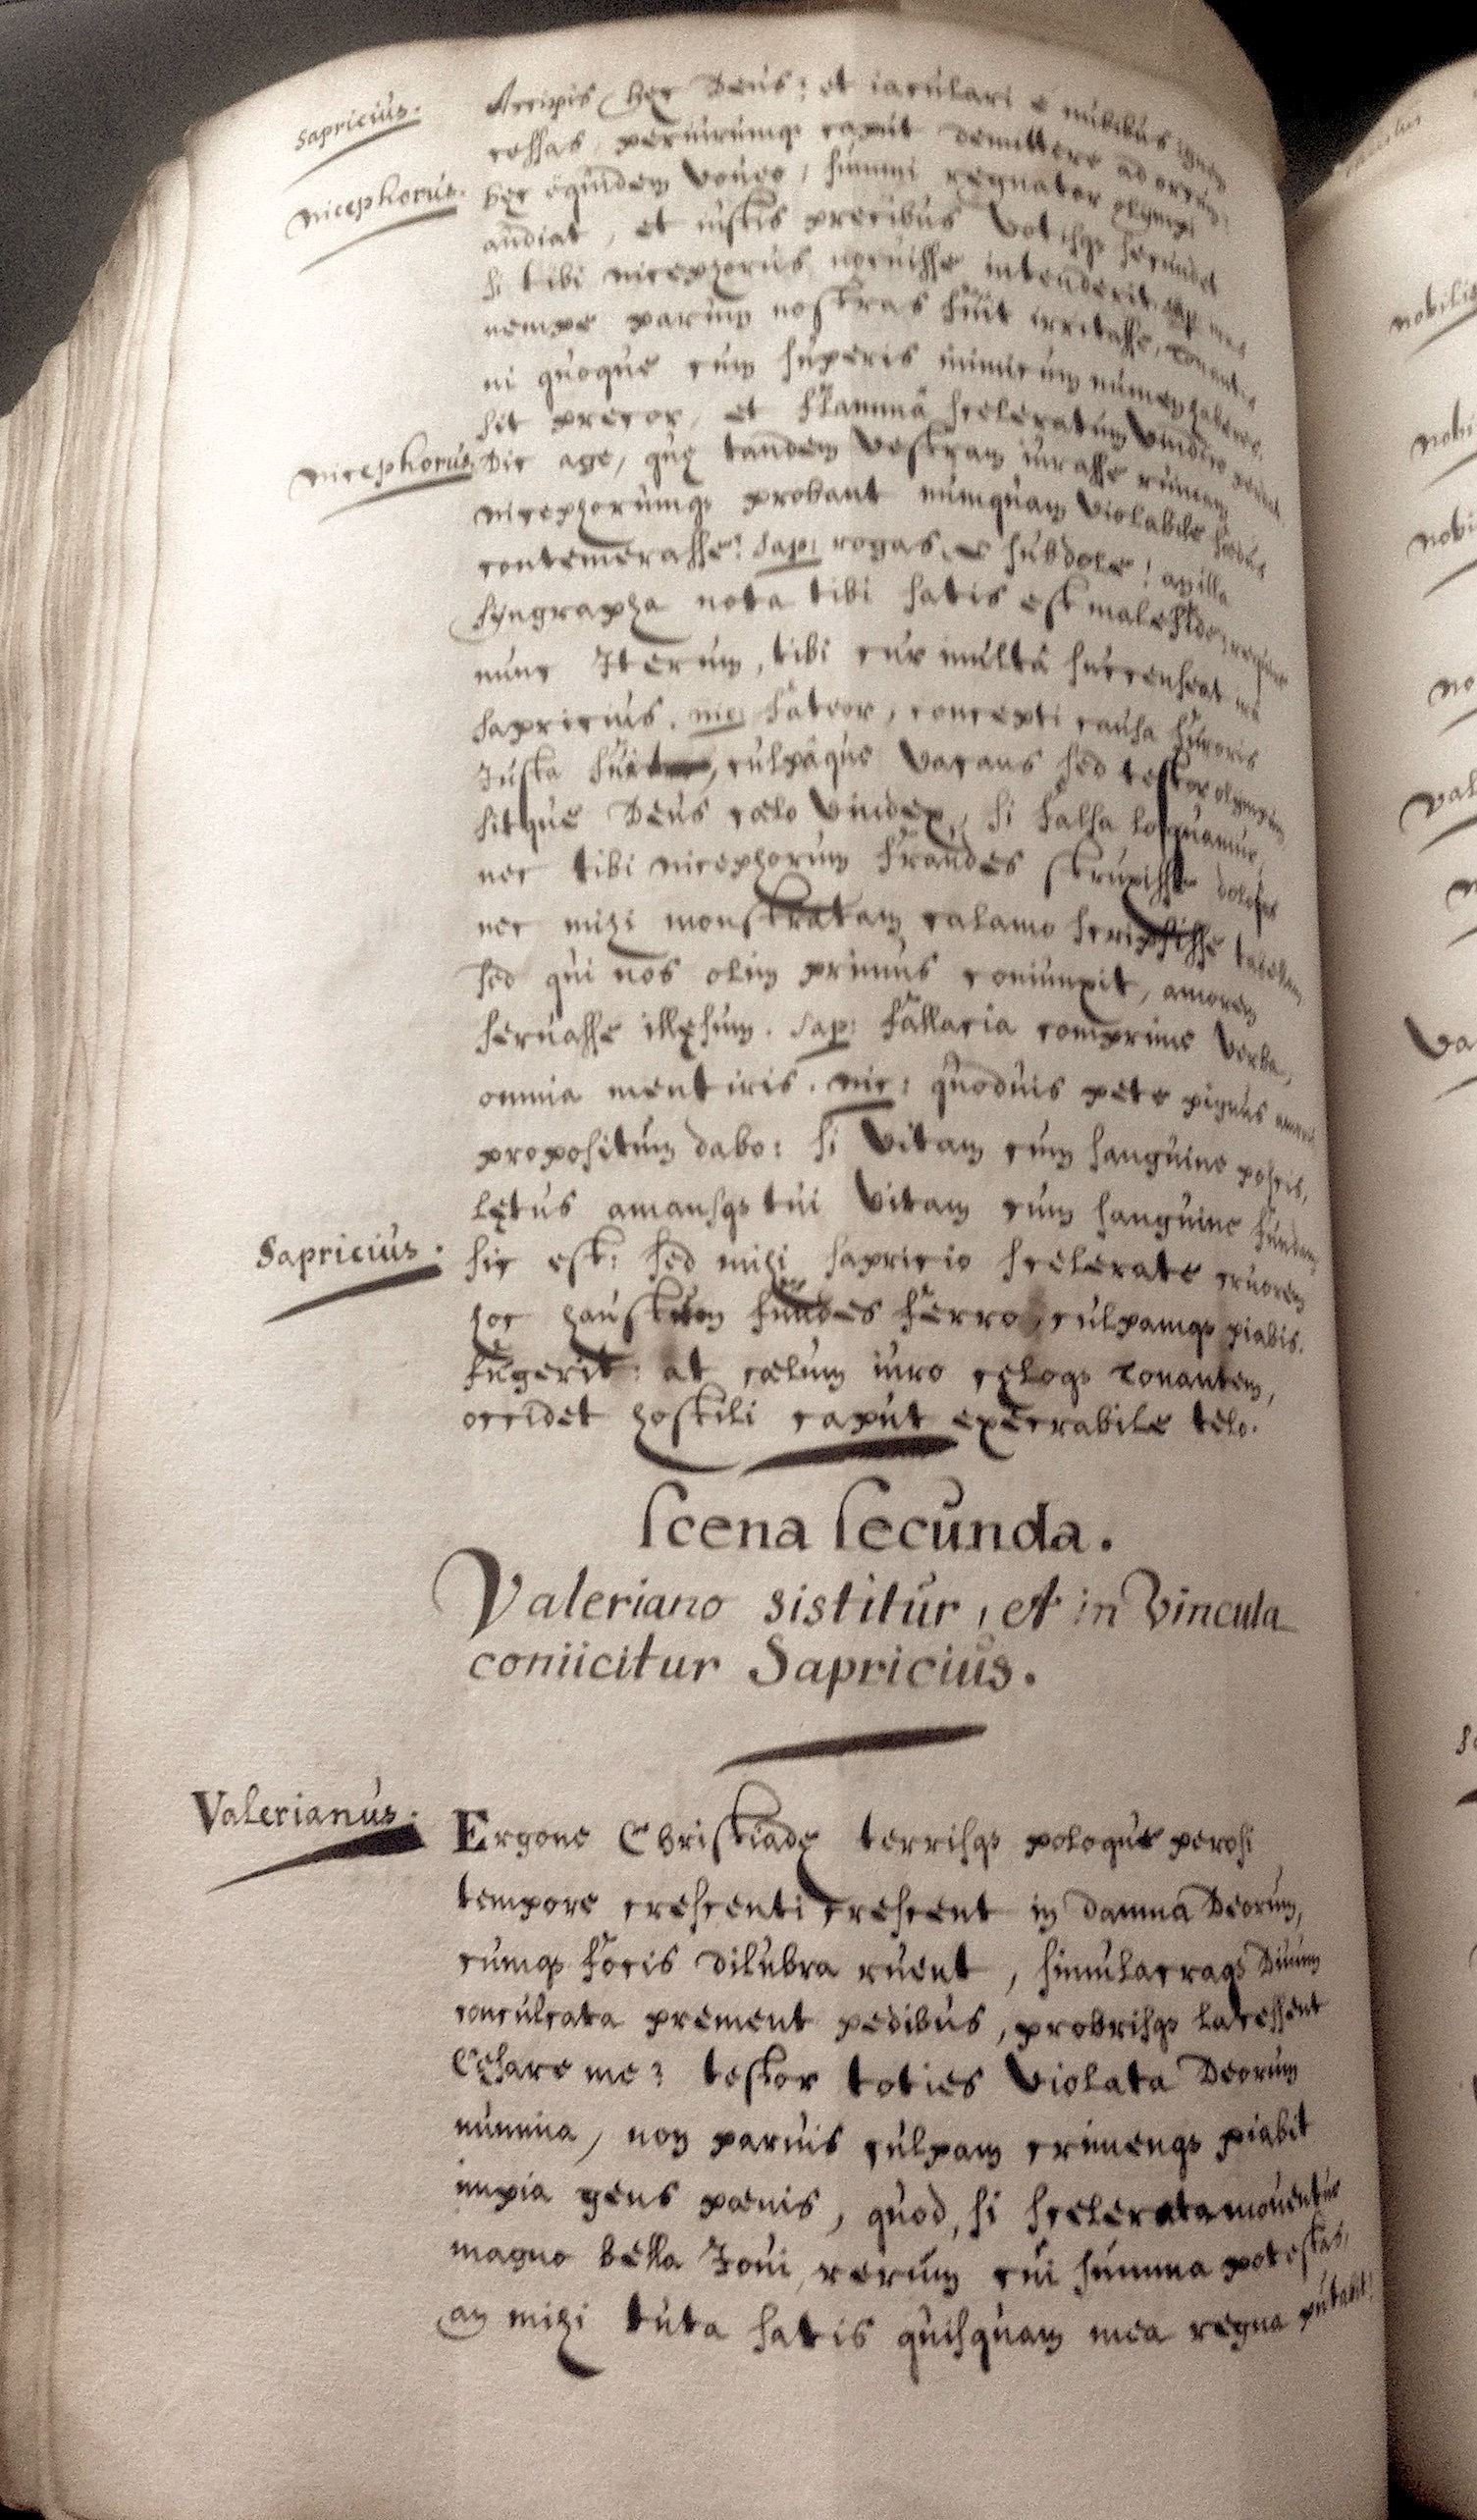 Sapricius. Accipis hęc Deus? et iaculari è nubibus ignem
cessas, periurumq3 caput demittere ad orcum?
Nicephorus. hęc equidem voueo, summi regnator olympi
audiat, et iustis precibus votisq3 secundet
si tibi nicephorus nocuisse intenderit.
nempe parum nostras fuit irritasse, tonantis
ni quoque cum superis inimicum numen haberes.
sit precor, et flammâ sceleratum vindice
Nicephorus. Dic age, quę tandem vestram iurasse ruinam
nicephorumq3 probant numquam violabile foedus
contemerasse? Sap: rogas, ô subdole! an illa
syngrapha nota tibi satis est malefide; require
nunc Iterum, tibi cur multâ succenseat irâ
sapricius. nic: fateor, concepti causa furoris
Iusta fuit, culpâque vacans sed testor olympum,
sitque Deus cælo vindex, si falsa loquamur,
nec tibi nicephorum fraudes struxisse dolosas
nec mihi monstratam calamo scripsisse tabellam
sed qui nos olim primus coniunxit, amorem
seruasse illęsum. Sap: fallacia comprime verba,
omnia mentiris. nic: quoduis pete pignus
propositum dabo: si vitam cum sanguine poscis,
lętus amansq3 tui vitam cum sanguine fundam
Sapricius. sic est: sed mihi sapricio scelerate cruorem
hoc haustum fundes ferro, culpamq3 piabis.
fugerit: at cælum iuro cęloq3 tonantem,
occidet hostili caput execrabile telo.
Scena secunda.
Valeriano sistitur, et in vincula
coniicitur Sapricius.
Valerianus. Ergone Christiadę terrisq3 poloque perosi
tempore crescenti crescent in damna Deorum,
cumq3 focis dilubra ruent, simulacraq3 Diuum
conculcata prement pedibus, probrisq3 lacessent
Cęsare me? testor toties violata Deorum
numina, non paruis culpam crimenq3 piabit
impia gens pœnis, quod, si scelerata mouentur
magno bella Ioui, rerum cui summa potestas,
an mihi tuta satis quisquam mea regna putabit!